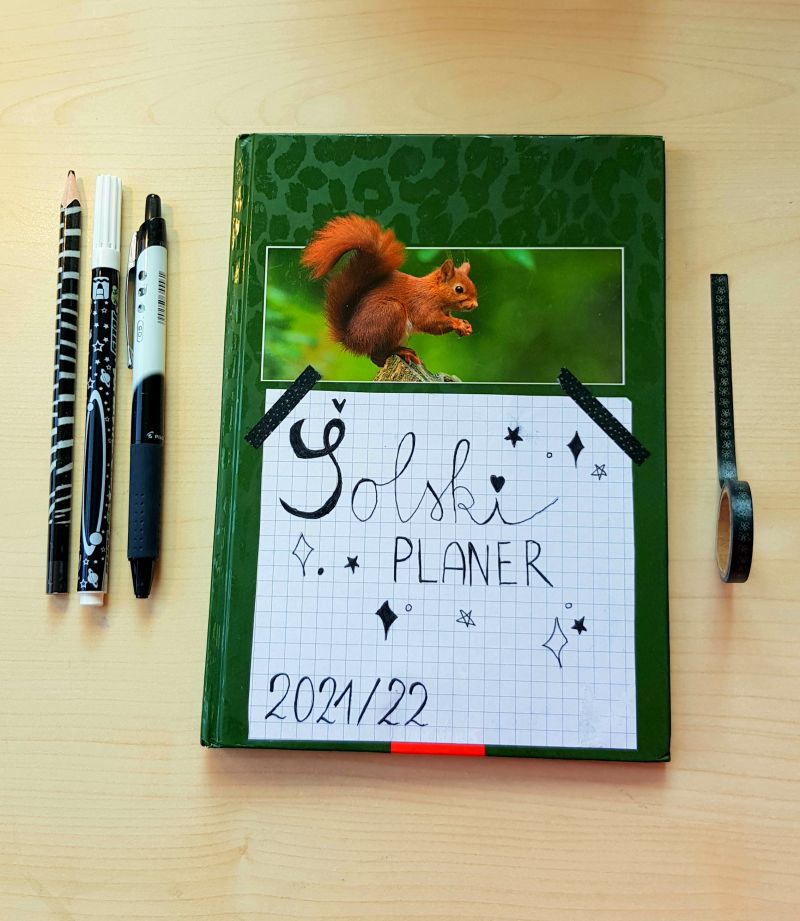 Šolski
PLANER
2021/22